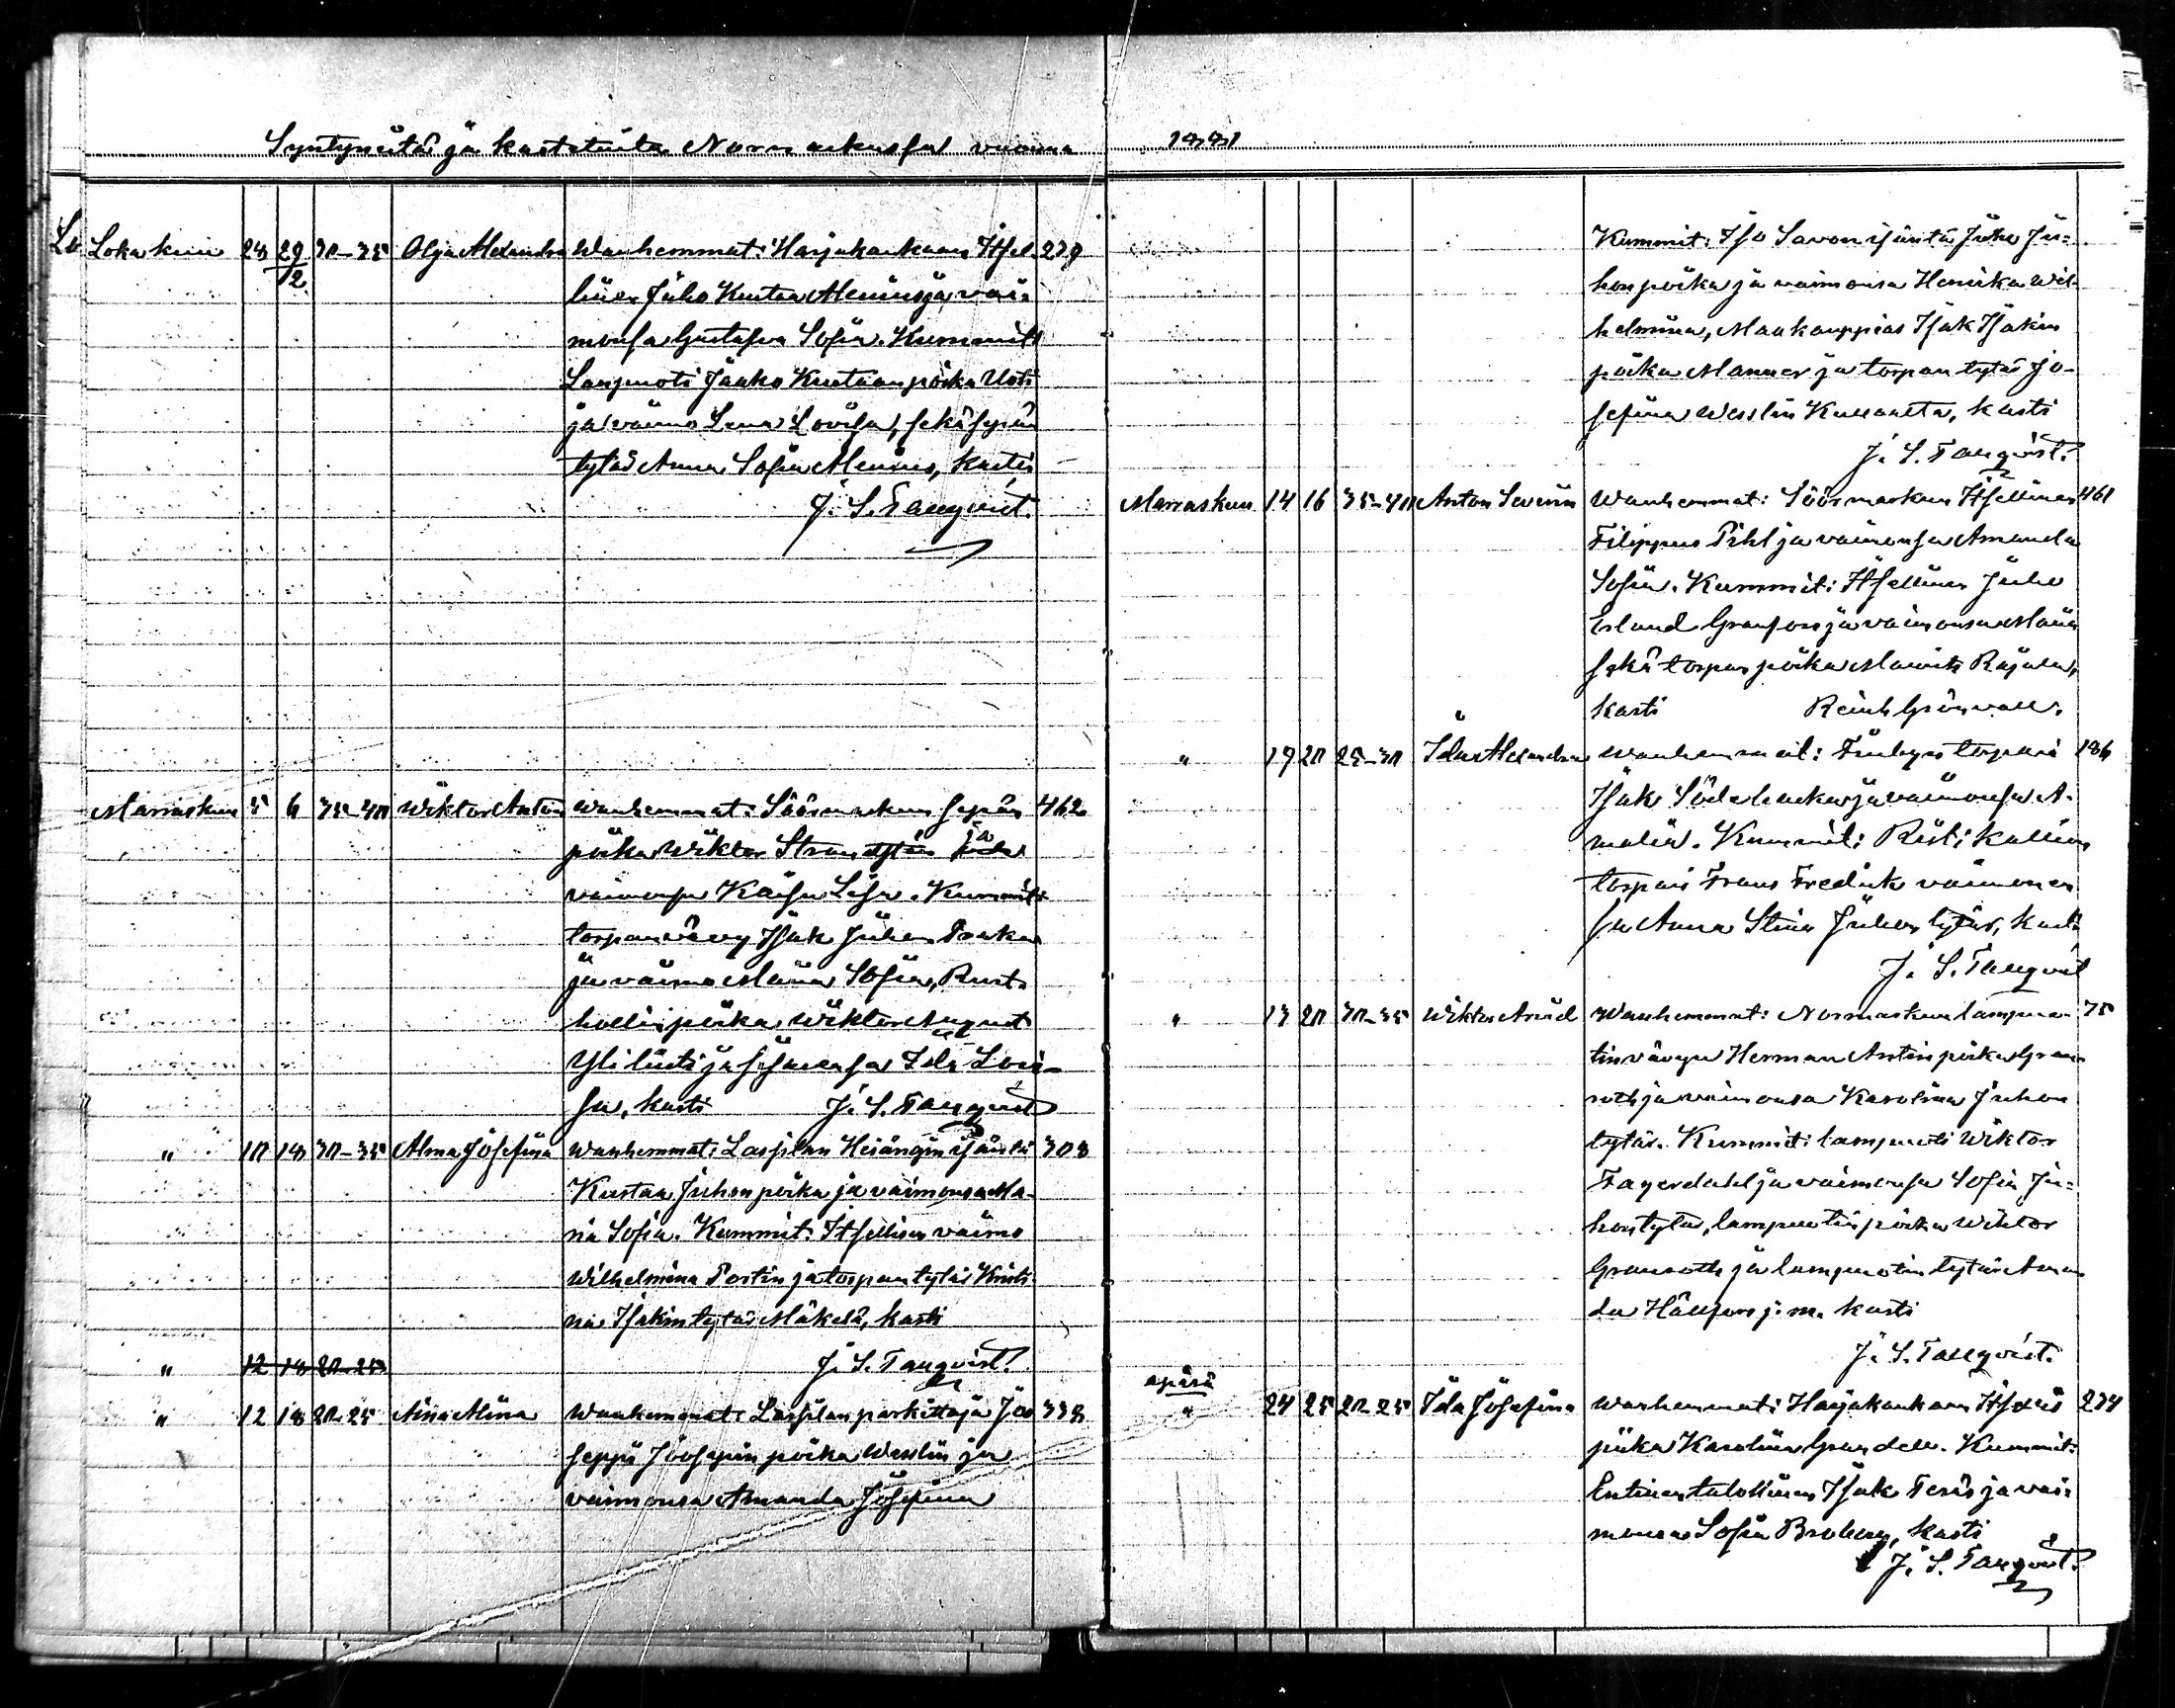 Syntyneitä ja kastetuita Normarkussa vuonna 1881
Lokakuu 28 29/12 30-35 Olga Alexandra Wanhemmat: Harjakankaan Itsel- 279
linen Juho Kustaa Alenius ja vai-
monsa Gustafva Sofia. Kummit:
Lampuoti Jaako Kustaanpoika Uoti
ja vaimo Lena Lovisa, sekä sepän
tytär Anna Sofia Alenius, kasti
J. S. Tanqvist.
Marraskuu 5 6 35-40 Wiktor Anton Wanhemmat: Söörmarkun sepän 462
poika Wiktor Strandsten ja
vaimonsa Kaisa Lisa. Kummit:
torpanvävy Isak Juhan
ja vaimo Maria Sofia, Rust-
hollin poika Wiktor August
Yliluoti ja sisarensa Ida Lovi-
sa, kasti J. S. Tanqvist
" 10 18 30-35 Alma Josefina Wanhemmat: Lassilan Heiängin isäntä 308
Kustaa Juhonpoika ja vaimonsa Ma-
ria Sofia. Kummit: Itsellisen vaimo
Wilhelmina Tortin ja torpan tytär Kristi-
na Isakintytär Mäkelä, kasti
" 12 18 20-25 J. S. Tanqvist.
" 12 18 20-25 Aina Alina Wanhemmat: Lassilan parkittaja Joo 338
seppi Joosepin poika Wesslin ja
vaimonsa Amanda Josefina
Kummit: Iso Savon isäntä Juho Ju-
honpoika ja vaimonsa Henrika Wil-
helmina, Maakauppias Isak Isakin
poika Manner ja torpan tytär Jo-
sefina Wesslin Kullaalta, kasti
J. S. Tanqvist.
Marraskuu 14 16 35-40 Anton Severin Wanhemmat: Söörmarkun Itsellinen 461
Filippus Pihl ja vaimonsa Amanda
Sofia. Kummit: Itsellinen Juho
Erland Granfors ja vaimonsa Maria
sekä torpan poika Maurits Rajala,
kasti Reinh Grönvall.
" 19 20 25-30 Ida Alexandra Wanhemmat: Finbyn torpari 186
Isak Söderbacka ja vaimonsa A-
malia. Kummit: Ristikallion
torpari Frans Fredrik vaimonen
sa Anna Stina Juhon tytär, kasti
J. S. Tanqvist
" 13 20 30-35 Wiktor Arvid Wanhemmat: Normarkun lampuo- 75
tin vävyn Herman Antinpoika Gran-
roth ja vaimonsa Karolina Juhon
tytär. Kummit: lampuoti Wiktor
Fagerdahl ja vaimonsa Sofia Ju-
hontytär, lampuotin poika Wiktor
Granroth ja lampuotin tytär Aman-
da Hällfors j. m. kasti
J. S. Tanqvist.
apärä
" 24 25 20-25 Ida Josefina Wanhemmat: Harjakankaan Itsellis 274
piika Karolina Grandell. Kummit:
Entinen talollinen Isak Teräs ja vai-
monsa Sofia Broberg, kasti
J. S. Tanqvist.